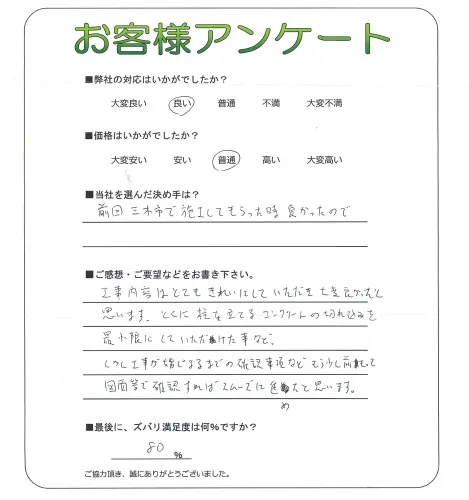 お客様アンケート
■弊社の対応はいかがでしたか？
大変良い 良い 普通 不満 大変不満
■価格はいかがでしたか？
大変安い 安い 普通 高い 大変高い
■当社を選んだ決め手は？
前回三木市で施工してもらった時良かったので
■ご感想・ご要望などをお書き下さい。
工事内容はとてもきれいにしていただき大変良かったと
思います。とくに柱を立てるコンクリートの切れ込みを
最小限にしていただけた事など。
しかし工事が始じまるまでの確認事項などもう少し前もって
図面等で確認すればスムーズに進めたと思います。
80 %
■最後に、ズバリ満足度は何％ですか？
ご協力頂き、誠にありがとうございました。